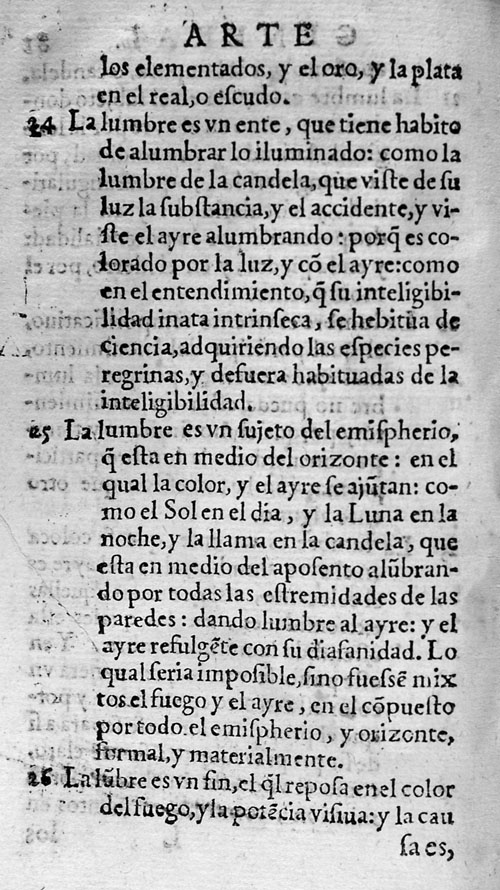 ARTE
los elementados, y el oro, y la plata
en el real, o escudo.
24 La lumbre es vn ente, que tiene habito
de alumbrar lo iluminado: como la
lumbre de la candela, que viſte de su
luz la ſubſtancia, y el accidente, y vi-
ſte el ayre alumbrando: porq̃ es co-
lorado por la luz, y cõ el ayre: como
en el entendimiento, q̃ su inteligibi-
lidad inata intrinſeca, se hebitua de
ciencia, adquiriendo las eſpecies pe-
regrinas, y defuera habituadas de la
inteligibilidad.
25 La lumbre es vn sujeto del emiſpherio,
q̃ eſta en medio del orizonte: en el
qual la color, y el ayre ſe ajũtan: co-
mo el Sol en el dia, y la Luna en la
noche, y la llama en la candela, que
eſta en medio del apoſento alũbran-
do por todas las eſtremidades de las
paredes: dando lumbre al ayre: y el
ayre refulgẽte con ſu diafanidad. Lo
qual ſeria impoſible, ſino fueſſẽ mix
tos el fuego y el ayre, en el cõpueſto
por todo el emiſpherio, y orizonte,
formal, y materialmente.
26 La lũbre es vn fin, el q̃l repoſa en el color
del fuego, y la potẽcia viſiua: y la cau
ſa es,